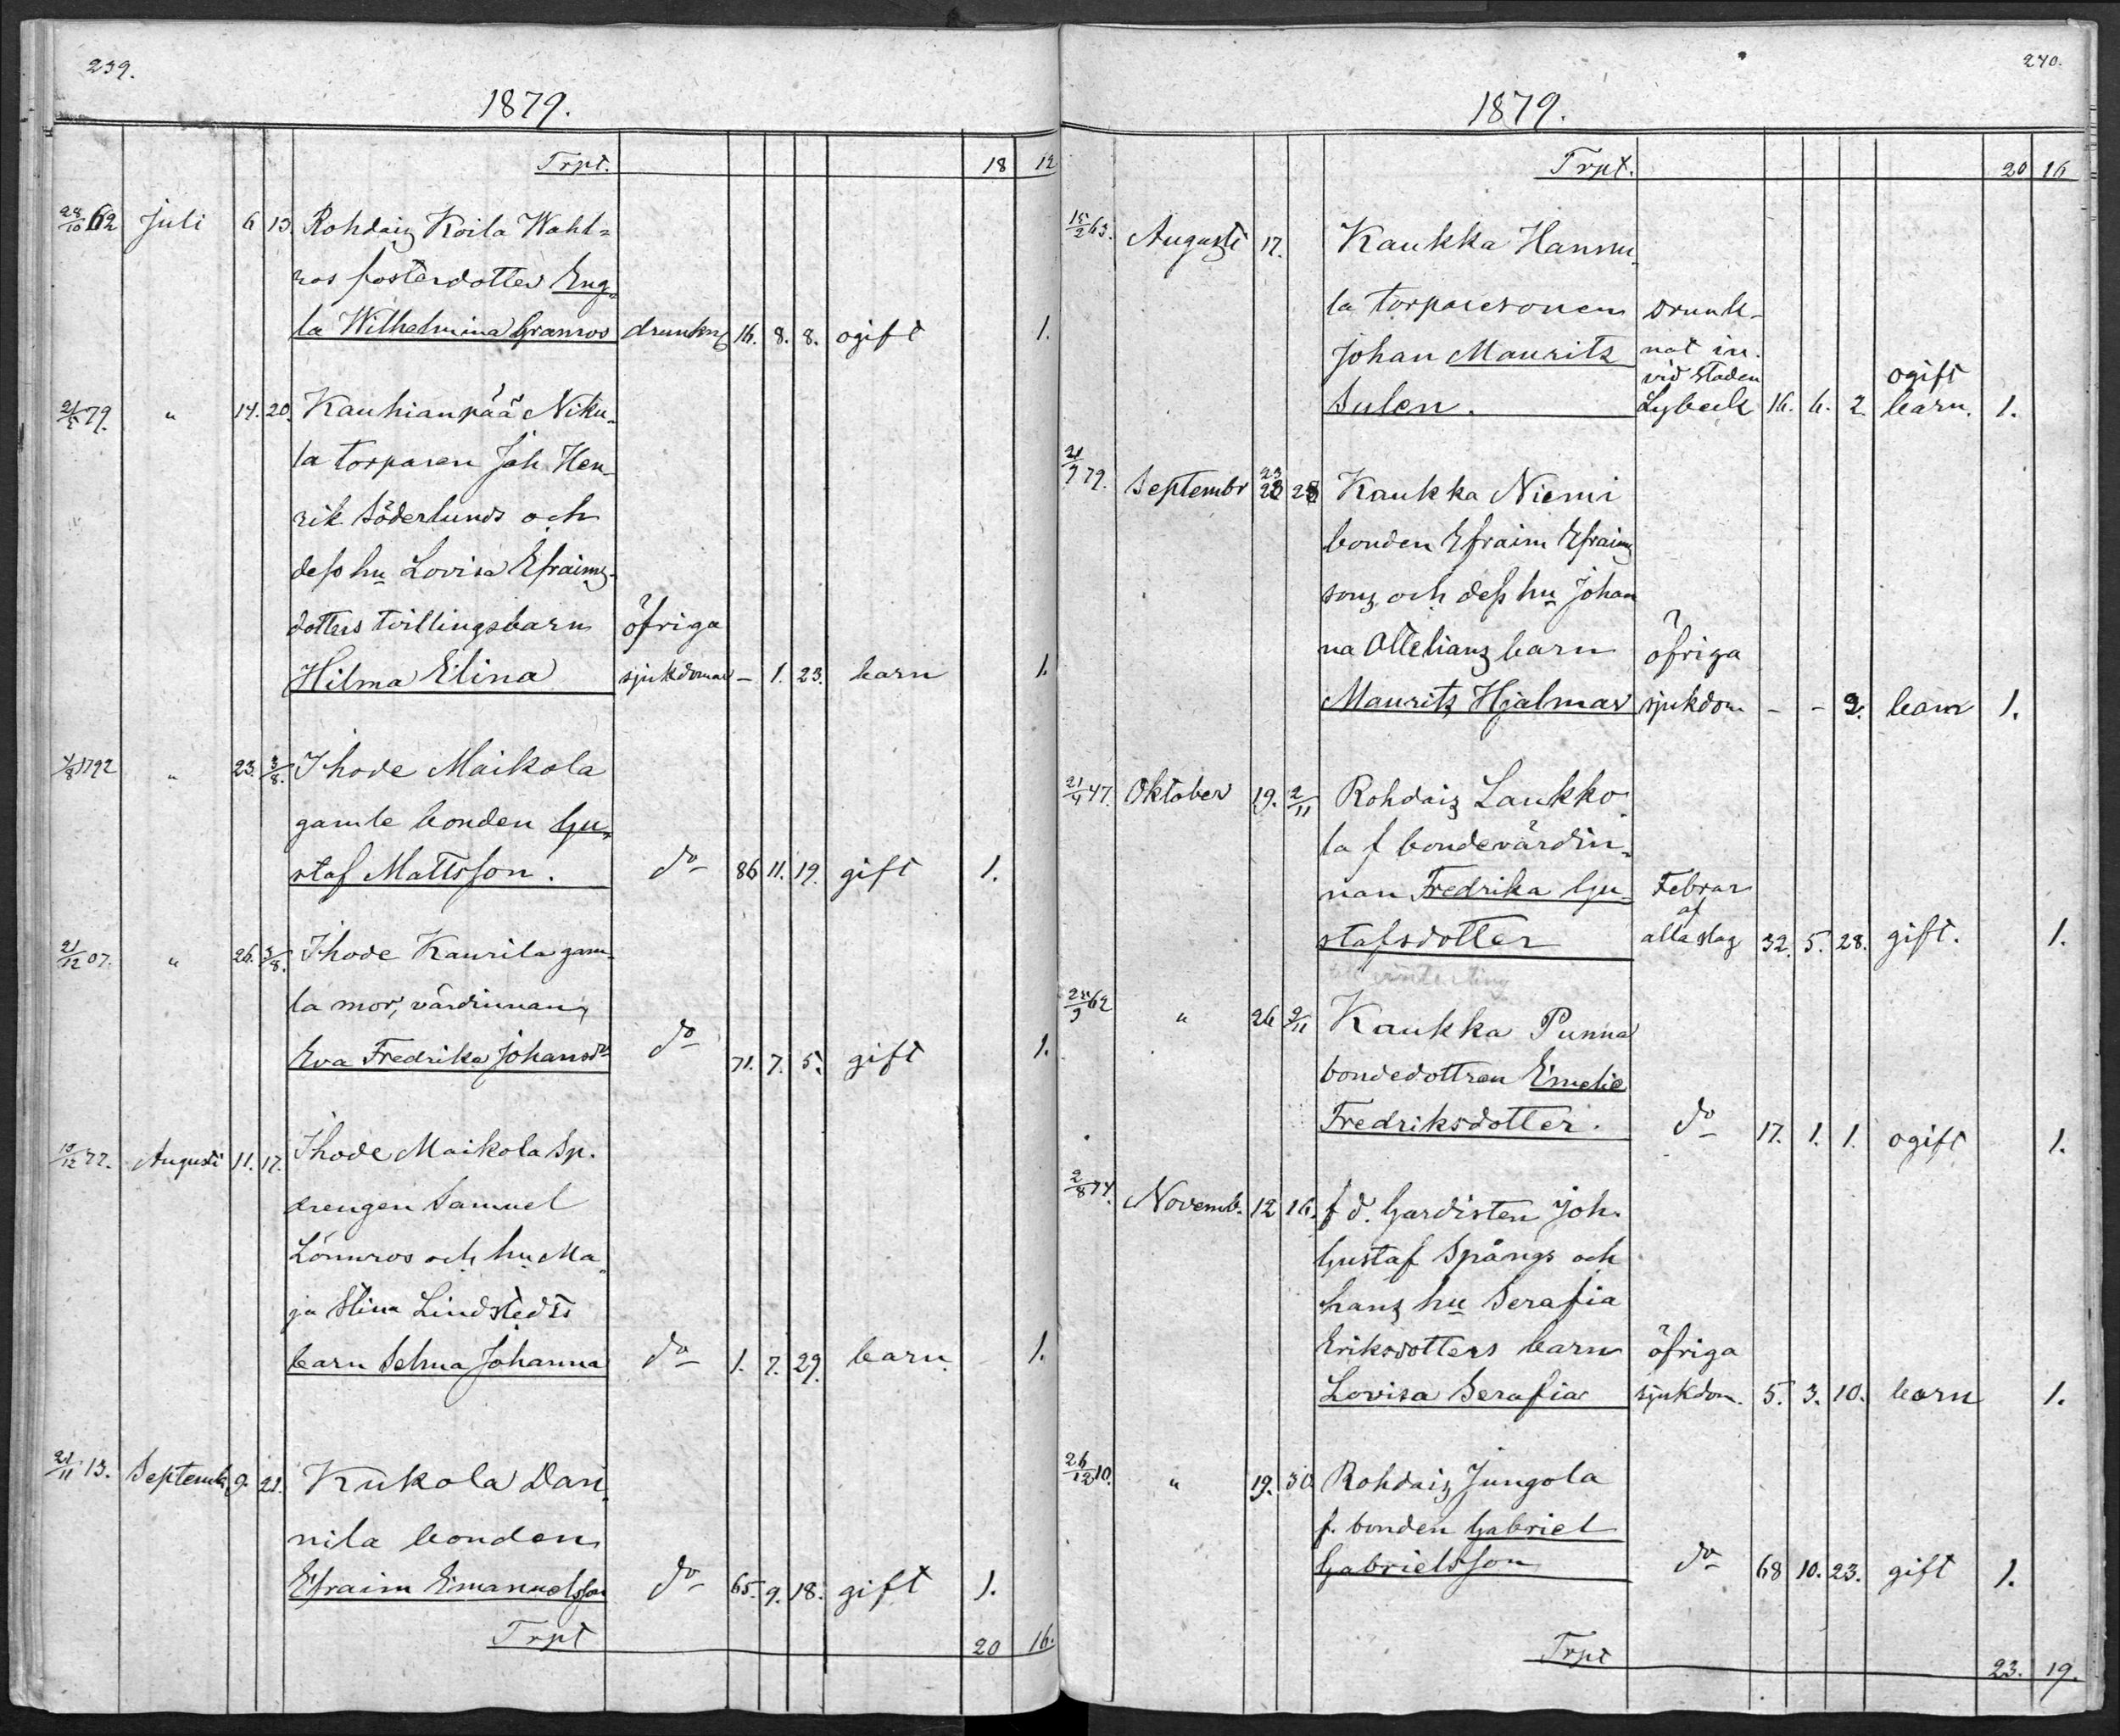 239.
1879.
Trpt. 18 12
28/10 62 Juli 6 13. Rohdaiz Koila Wahl-
ros fosterdotter Eng-
la Wilhelmina Granros drunkng 16. 8. 8. ogift 1.
21/5 79. " 14. 20. Kauhianpää Niku-
la torparen Joh. Hen-
rik Söderlunds och
dess hu Lovisa Efraims-
dotters tvillingsbarn öfriga
Hilma Elina sjukdomar – 1. 23. barn 1.
4/8 1792 " 23. 3/8. Ihode Maikola
gamle bonden Gu-
staf Mattsson. do 86 11. 19. gift 1.
21/12 07. " 26. 3/8. Ihode Kaurila gam-
la mor, värdinnan
Eva Fredrika Johansdr do 71. 7. 5. gift 1.
13/12 77. Augusti 11. 17. Ihode Maikola Sp.
drengen Samuel
Lönnros och hu Ma-
ja Stina Lindstedts
barn Selma Johanna do 1. 7. 29. barn 1.
21/11 13. Septemb. 9. 21. Kukola Dan-
nila bonden
Efraim Emanuelsson do 65. 9. 18. gift 1.
Trpt 20 16.
240.
1879.
Trpt. 20 16
15/2 63. Augusti 17. Kaukka Hannu-
la torparesonen Drunk-
Johan Mauritz nat in
vid staden ogift
Sulen. Lybeck 16. 6. 2. barn. 1.
21/9 79. Septembr 23 28 Kaukka Niemi
bonden Efraim Efraims-
sons och dess hu Johan
na Ottelians barn öfriga
Mauritz Hjalmar sjukdom – – 2. barn 1.
21/4 47. Oktober 19. 2/11 Rohdaiz Laukko-
la f bondevärdin-
nan Fredrika Gu- Febrar
af
stafsdotter alla slag 32. 5. 28. gift. 1.
25/9 62 " 26 2/11 Kaukka Punna
bondedottren Emelie
Fredriksdotter. do 17. 1. 1. ogift 1.
2/8 74. Novemb. 12 16. f d. Gardisten Joh.
Gustaf Spångs och
hans hu Serafia
Eriksdotters barn öfriga
Lovisa Serafia sjukdom. 5. 3. 10. barn 1.
26/12 10. " 19. 30 Rohdaiz Jungola
f. bonden Gabriel
Gabrielsson do 68 10. 23. gift 1.
Trpt 23. 19.